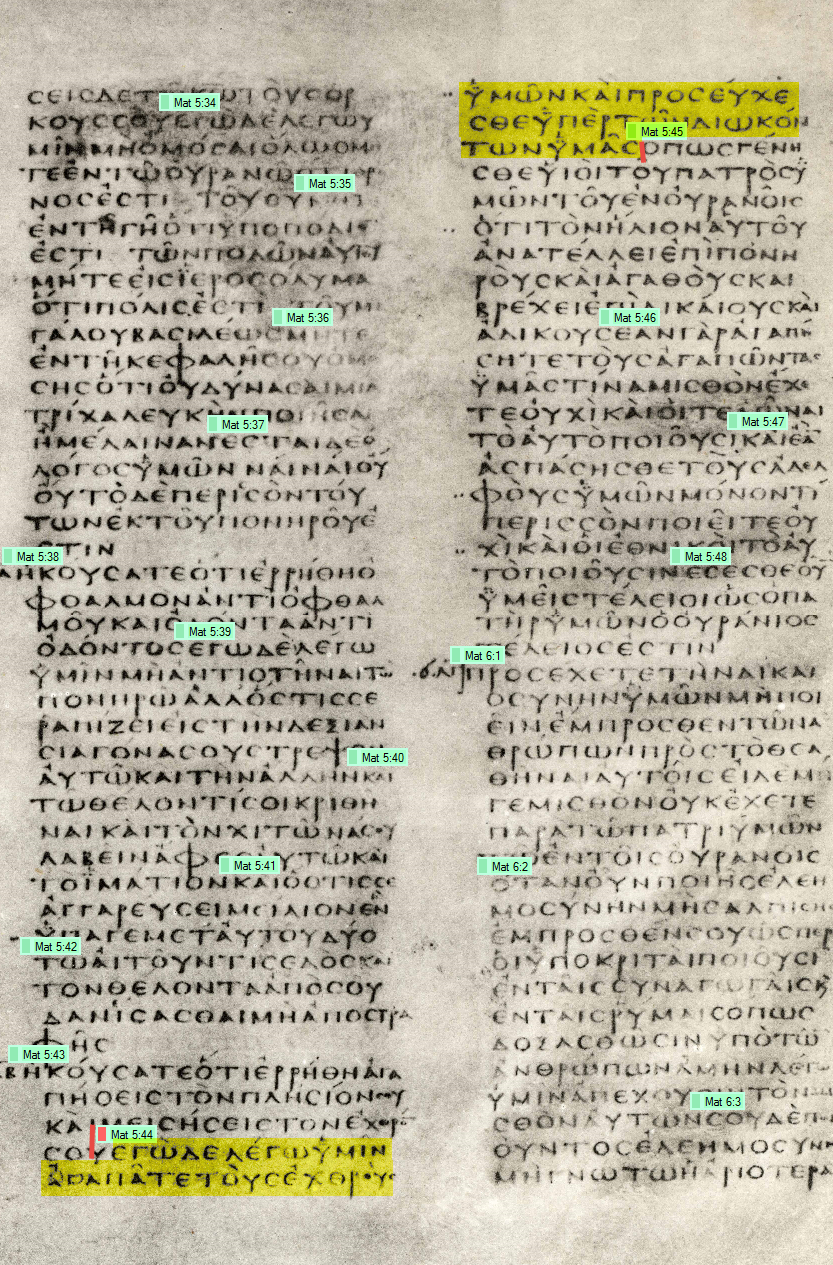 Mat 5:34
ϹΕΙϹΔΕΤ ΤΟΥϹΟΡ
ΚΟΥϹϹΟΥΕΓΩΔΕΛΕΓΩΥ
ΜΙΝΜΗΟΜΟϹΑΙΟΛΩϹΜΗ
ΤΕΕΝΤΩΟΥΡΑΝΩ
Mat 5:35
ΝΟϹΕϹΤΙ ΤΟΥΘΥ
ΕΝΤΗΓΗΟΤΙΥΠΟΠΟΔΙΟ
ΕϹΤΙ ΤΩΝΠΟΔΩΝΑΥΤΟΥ
ΜΗΤΕΕΙϹΪΕΡΟϹΟΛΥΜΑ
ΟΤΙΠΟΛΙϹΕϹΤΙ ΤΟΥΜΕ
Mat 5:36
ΓΑΛΟΥΒΑϹΙΛΕΩϹΜΗΤΕ
ΕΝΤΗΚΕΦΑΛΗϹΟΥΟΜΟ
ϹΗϹΟΤΙΟΥΔΥΝΑϹΑΙΜΙΑ
ΤΡΙΧΑΛΕΥΚΗΝΠΟΙΗϹΑΙ
Mat 5:37
ΗΜΕΛΑΙΝΑΝΕϹΤΑΙΔΕΟ
ΛΟΓΟϹΫΜΩΝΝΑΙΝΑΙΟΥ
ΟΥΤΟΔΕΠΕΡΙϹϹΟΝΤΟΥ
ΤΩΝΕΚΤΟΥΠΟΝΗΡΟΥΕ
ϹΤΙΝ
Mat 5:38
ΗΚΟΥϹΑΤΕΟΤΙΕΡΡΗΘΗΟ
ΦΘΑΛΜΟΝΑΝΤΙΟΦΘΑΛ
ΜΟΥΚΑΙΟΔΟΝΤΑΑΝΤΙ
Mat 5:39
ΟΔΟΝΤΟϹΕΓΩΔΕΛΕΓΩ
ΫΜΙΝΜΗΑΝΤΙϹΤΗΝΑΙΤΩ
ΠΟΝΗΡΩΑΛΛΟϹΤΙϹϹΕ
ΡΑΠΙΖΕΙΕΙϹΤΗΝΔΕΞΙΑΝ
ϹΙΑΓΟΝΑϹΟΥϹΤΡΕΨΟΝ
Mat 5:40
ΑΥΤΩΚΑΙΤΗΝΑΛΛΗΝΚΑΙ
ΤΩΘΕΛΟΝΤΙϹΟΙΚΡΙΘΗ
ΝΑΙΚΑΙΤΟΝΧΙΤΩΝΑϹΟΥ
ΛΑΒΕΙΝΑΦΕϹΑΥΤΩΚΑΙ
Mat 5:41
ΤΟΪΜΑΤΙΟΝΚΑΙΟϹΤΙϹϹΕ
ΑΓΓΑΡΕΥϹΕΙΜΕΙΛΙΟΝΕΝ
ΫΠΑΓΕΜΕΤΑΥΤΟΥΔΥΟ
Mat 5:42
ΤΩΑΙΤΟΥΝΤΙϹΕΔΟϹΚΑΙ
ΤΟΝΘΕΛΟΝΤΑΑΠΟϹΟΥ
ΔΑΝΙϹΑϹΘΑΙΜΗΑΠΟϹΤΡΑ
ΦΗϹ
Mat 5:43
ΗΚΟΥϹΑΤΕΟΤΙΕΡΡΗΘΗΑΓΑ
ΠΗϹΕΙϹΤΟΝΠΛΗϹΙΟΝϹΟΥ
ΚΑΙΜΕΙϹΗϹΕΙϹΤΟΝΕΧΘΡΟ
Mat 5:44
ϹΟΥΕΓΩΔΕΛΕΓΩΫΜΙΝ
ΑΓΑΠΑΤΕΤΟΥϹΕΧΘΡΟΥϹ
ΫΜΩΝΚΑΙΠΡΟϹΕΥΧΕ
ϹΘΕΫΠΕΡΤΩΝΔΙΩΚΟΝ
Mat 5:45
ΤΩΝΫΜΑϹΟΠΩϹΓΕΝΗ
ϹΘΕΫΙΟΙΤΟΥΠΑΤΡΟϹΫ
ΜΩΝΤΟΥΕΝΟΥΡΑΝΟΙϹ
ΟΤΙΤΟΝΗΛΙΟΝΑΥΤΟΥ
ΑΝΑΤΕΛΛΕΙΕΠΙΠΟΝΗ
ΡΟΥϹΚΑΙΑΓΑΘΟΥϹΚΑΙ
ΒΡΕΧΕΙΕΠΙΔΙΚΑΙΟΥϹΚΑΙ
Mat 5:46
ΑΔΙΚΟΥϹΕΑΝΓΑΡΑΓΑΠΗ
ϹΗΤΕΤΟΥϹΑΓΑΠΩΝΤΑϹ
ΫΜΑϹΤΙΝΑΜΙϹΘΟΝΕΧΕ
ΤΕΟΥΧΙΚΑΙΟΙΤΕΛΩΝΑΙ
Mat 5:47
ΤΟΑΥΤΟΠΟΙΟΥϹΙΚΑΙΕΑ
ΑϹΠΑϹΗϹΘΕΤΟΥϹΑΔΕΛ
ΦΟΥϹΫΜΩΝΜΟΝΟΝΤΙ
ΠΕΡΙϹϹΟΝΠΟΙΕΙΤΕΟΥ
ΧΙΚΑΙΟΙΕΘΝΙΚΟΙΤΟΑΥ
Mat 5:48
ΤΟΠΟΙΟΥϹΙΝΕϹΕϹΘΕΟΥ
ΫΜΕΙϹΤΕΛΕΙΟΙΩϹΟΠΑ
ΤΗΡΫΜΩΝΟΟΥΡΑΝΙΟϹ
ΤΕΛΕΙΟϹΕϹΤΙΝ
Mat 6:1
ΠΡΟϹΕΧΕΤΕΤΗΝΔΙΚΑΙ
ΟϹΥΝΗΝΫΜΩΝΜΗΠΟΙ
ΕΙΝΕΜΠΡΟϹΘΕΝΤΩΝΑ
ΘΡΩΠΩΝΠΡΟϹΤΟΘΕΑ
ΘΗΝΑΙΑΥΤΟΙϹΕΙΔΕΜΗ
ΓΕΜΙϹΘΟΝΟΥΚΕΧΕΤΕ
ΠΑΡΑΤΩΠΑΤΡΙΥΜΩΝ
ΤΩΕΝΤΟΙϹΟΥΡΑΝΟΙϹ
Mat 6:2
ΟΤΑΝΟΥΝΠΟΙΗϹΕΛΕΗ
ΜΟϹΥΝΗΝΜΗϹΑΛΠΙϹΗϹ
ΕΜΠΡΟϹΘΕΝϹΟΥΩϹΠΕΡ
ΟΙΫΠΟΚΡΙΤΑΙΠΟΙΟΥϹΙ
ΕΝΤΑΙϹϹΥΝΑΓΩΓΑΙϹΚ
ΕΝΤΑΙϹΡΥΜΑΙϹΟΠΩϹ
ΔΟΞΑϹΘΩϹΙΝΥΠΟΤΩ
ΑΝΘΡΩΠΩΝΑΜΗΝΛΕΓ
ΥΜΙΝΑΠΕΧΟΥϹΙΝΤΟΝ
Mat 6:3
ϹΘΟΝΑΥΤΩΝϹΟΥΔΕΠ
ΟΥΝΤΟϹΕΛΕΗΜΟϹΥΝΗ
ΜΗΓΝΩΤΩΗΑΡΙϹΤΕΡΑ